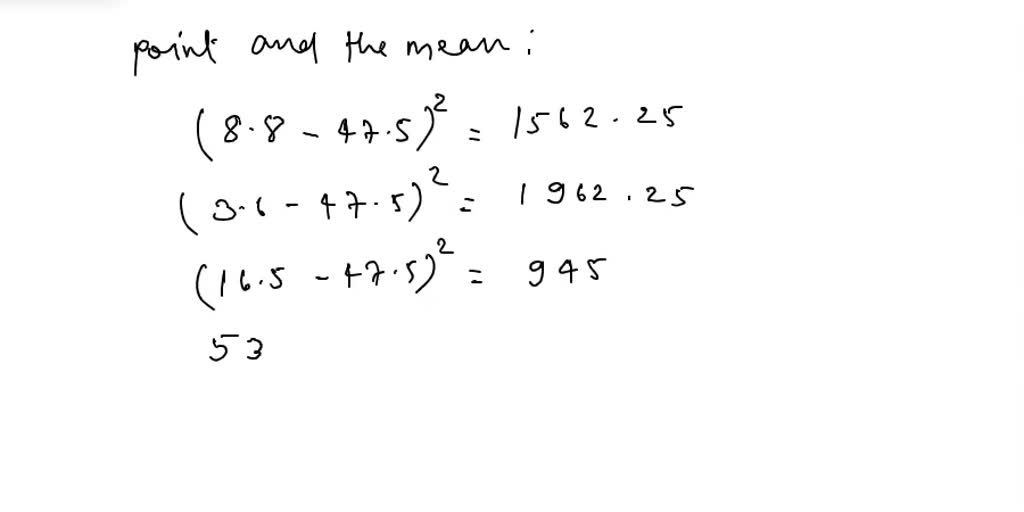 point and the mean :
(8.8 - 47.5)² = 1562.25
(3.6 - 47.5)² = 1962.25
(16.5 - 47.5)² = 945
53